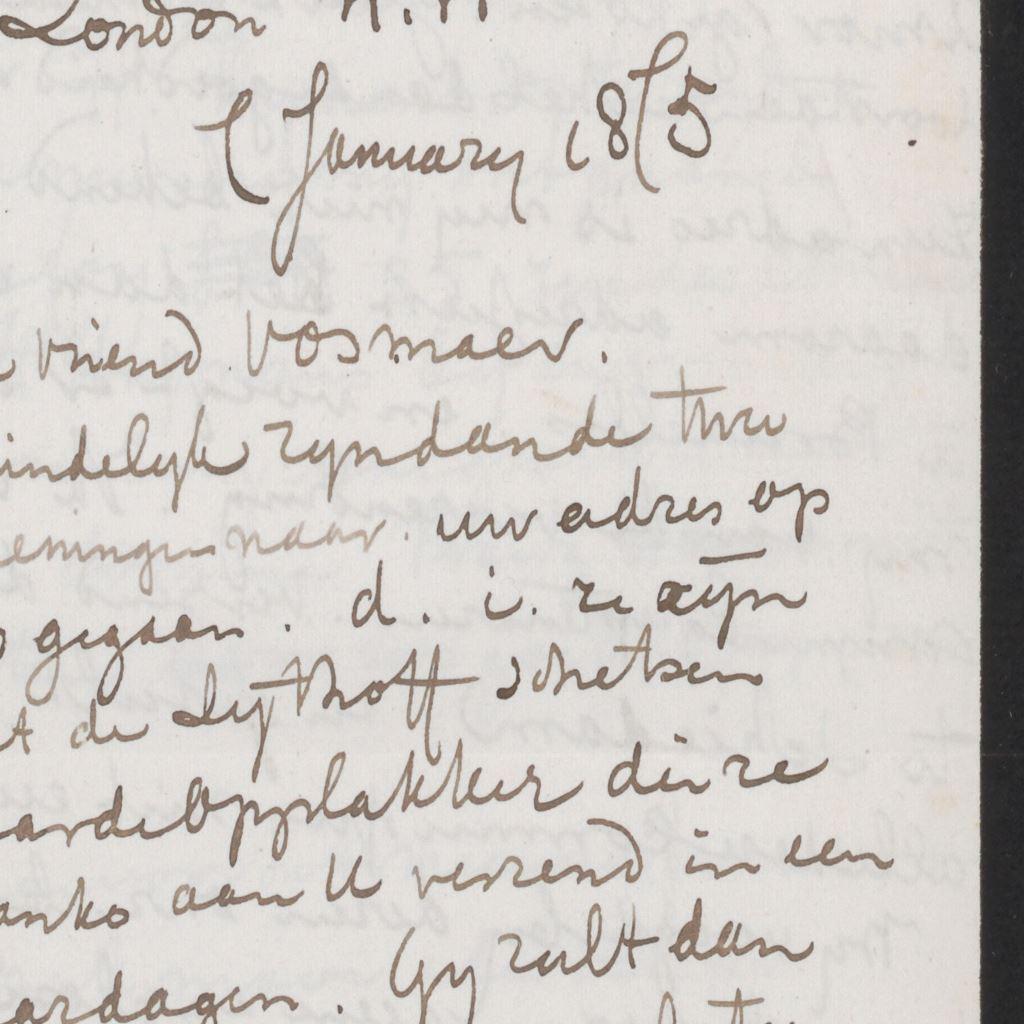 London N.W
( January 18(5
vriend Vosmaer.
indelyk zyndande twee
eningen naar uw adres op
gegaan. d. i. ze zyn
t de Sythoff schetsen
aarde Opplakker die ze
anko aan U verzend in een
ardagen. Gy zult dan